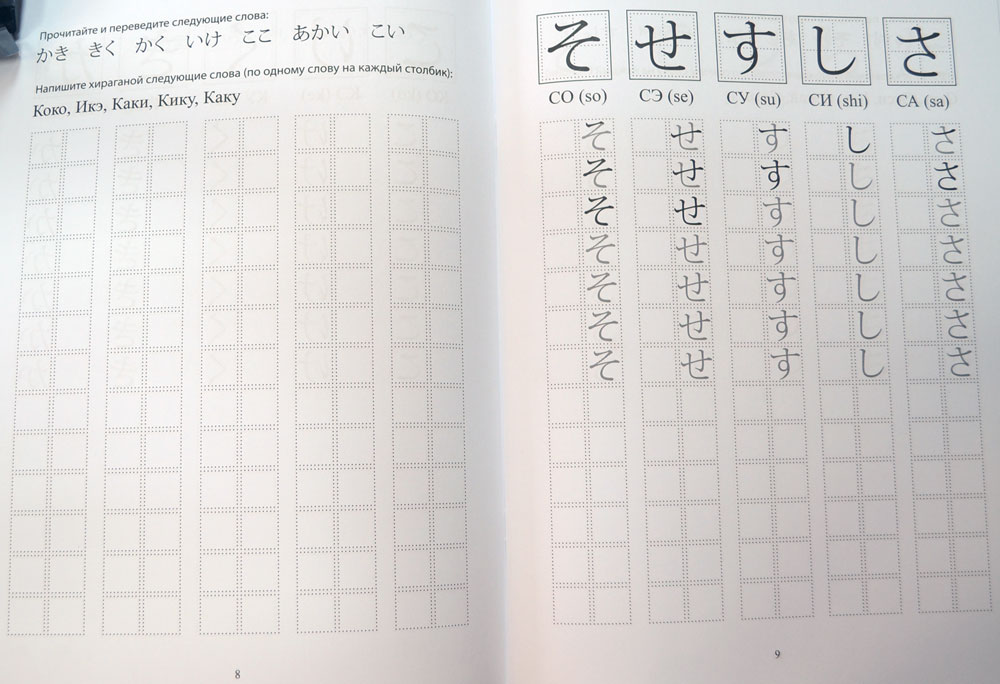 Прочитайте и переведите следующие слова:
かき きく かく いけ ここ あかい こい
Напишите хираганой следующие слова (по одному слову на каждый столбик):
Коко, Икэ, Каки, Кику, Каку
8
そ せ す し さ
СО (so) СЭ (se) СУ (su) СИ (shi) СА (sa)
そ せ す し さ
そ せ す し さ
そ せ す し さ
そ せ す し さ
そ せ す し さ
そ せ す し さ
そ せ す し さ
9